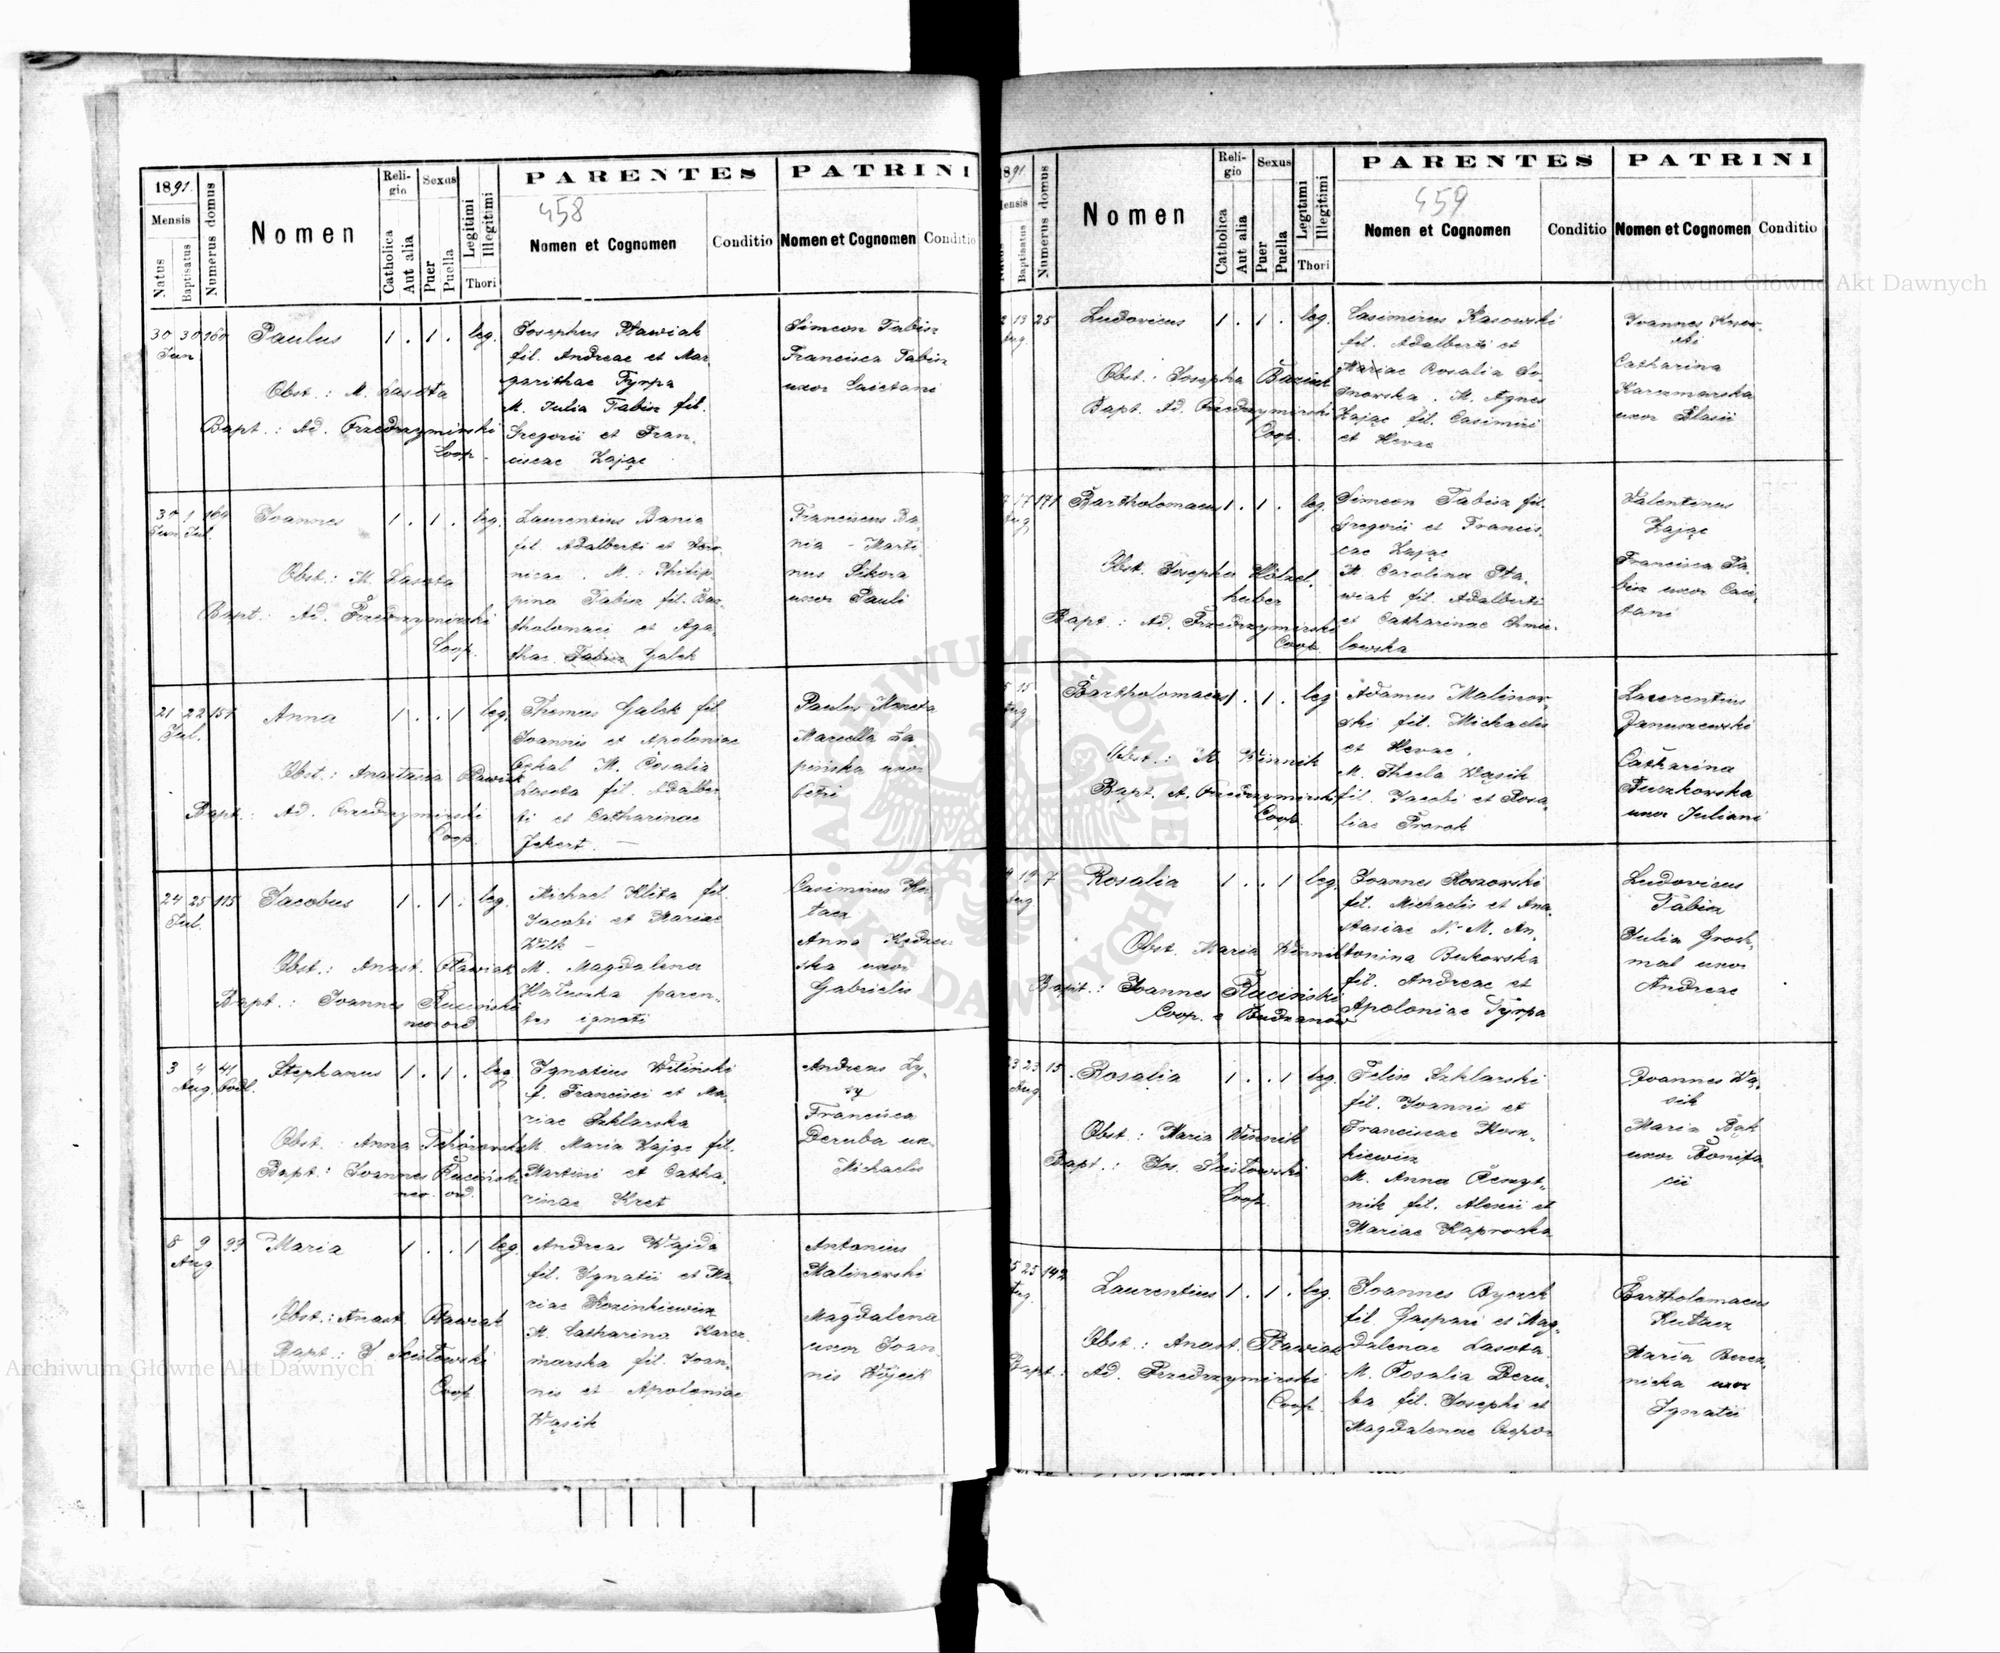 1891.
Mensis
Natus
Baptisatus
Numerus domus
Nomen
Religio
Catholica
Aut alia
Sexus
Puer
Puella
Legitimi
Illegitimi
Thori
PARENTES
458
Nomen et Cognomen
Conditio
PATRINI
Nomen et Cognomen
Conditio
30 30 160
Jun
Paulus
1 . 1 . leg.
Obst.: M. Lasota
Bapt.: Ad. Przedrzymirski
Coop.
Josephus Pawiak
fil. Andreae et Mar
garithae Tyrpa
M. Julia Tabisz fil.
Gregorii et Fran-
ciscae Zając
Simeon Tabisz
Francisca Tabisz
uxor Caietani
30 1 164
Jun Jul.
Joannes
1 . 1 . leg.
Obst.: M. Lasota
Bapt: Ad. Przedrzymirski
Coop.
Laurentius Bania
fil. Adalberti et
nicae. M.: Philip-
pina Tabisz fil. Bar-
tholomaei et Aga-
thae Galek
Franciscus Ba-
nia - Marti
nus Sikora
uxor Pauli
21 22 151
Jul.
Anna
1 . . 1 leg.
Obst.: Anastasia Pawiak
Bapt: Ad. Przedrzymirski
Coop.
Thomas Galek fil
Joannis et Apoloniae
M. Rosalia
Lasota fil. Adalber
ti et Catharinae
Jekert. —
Paulus Moneta
Marcella Ła
pińska uxor
Petri
24 25 115
Jul.
Jacobus
1 . 1 . leg.
Obst.: Anast. Pawiak
Bapt.: Joannes Ruciński
neo ord.
Michael Klita fil.
Jacobi et Mariae
Wilk —
M. Magdalena
paren-
tes ignoti
Casimirus
Anna
ska uxor
Gabrielis
3 4 41
Aug.
Stephanus
1 . 1 . leg
Obst.: Anna
Bapt: Joannes Ruciński
neo. ord.
Ignatius Wiliński
f. Francisci et Ma-
riae Szklarska
M. Maria Zając fil.
Martini et Catha-
rinae Kret
Andreas Ły-
sy
Francisca
Deruba ux.
Michaelis
8 9 99
Aug
Maria
1 . . 1 leg.
Obst.: Anast. Pawiak
Bapt: J Scisłowski
Coop
Andreas Wajda
fil. Ignatii et Ma-
riae Kozinkiewicz
M. Catharina Karcz-
marska fil. Joan-
nis et Apoloniae
Wąsik
Antonius
Malinowski
Magdalena
uxor Joan-
nis Wójcik
1891
Mensis
Baptisatus
Numerus domus
Nomen
Religio
Catholica
Aut alia
Sexus
Puer
Puella
Legitimi
Illegitimi
Thori
PARENTES
459
Nomen et Cognomen
Conditio
PATRINI
Nomen et Cognomen
Conditio
13 25
Aug
Ludovicus
1 . 1 . leg.
Obst.: Josepha Baziak
Bapt. Ad. Przedrzymirski
Coop.
Casimirus Kasowski
fil. Adalberti et
Mariae Rosalia So-
snowska. M. Agnes
Zając fil. Casimiri
et Hevae
Joannes
ski
Catharina
Karczmarska
uxor Blasii
17 171
Aug
Bartholomaeus
1 . 1 . leg.
Obst. Josepha Hölzel-
huber
Bapt.: Ad. Przedrzymirski
Coop.
Simeon Tabisz fil.
Gregorii et Francis-
cae Zając
M. Carolina Sta-
wiak fil. Adalberti
et Catharinae Chmie-
lowska
Valentinus
Zając
Francisca Ta-
bisz uxor Caie-
tani
15
Aug
Bartholomaeus
1 . 1 . leg
Obst.: M Winnik
Bapt. A. Przedrzymirski
Coop.
Adamus Malinow-
ski fil. Michaelis
et Hevae.
M. Thecla Wąsik
fil. Jacobi et Rosa-
liae
Laurentius
Januszewski
Catharina
Tuszkowska
uxor Juliani
19 7
Aug
Rosalia
1 . . 1 leg.
Obst. Maria Winnik
Bapt.: Joannes Ruciński
Coop. e Budzanów
Joannes Koszowski
fil. Michaelis et Ana-
stasiae N. M. An-
tonina Bukowska
fil. Andreae et
Apoloniae Tyrpa
Ludovicus
Tabisz
Julia Groch-
mal uxor
Andreae
23 23 15
Aug
Rosalia
1 . . 1 leg.
Obst.: Maria Winnik
Bapt.: Jos. Scisłowski
Coop.
Felix Szklarski
fil. Joannis et
Franciscae
kiewicz
M. Anna
nik fil. Alexii et
Mariae
Joannes Wą-
sik
Maria Bąk
uxor Bonifa-
cii
25 25 142
Aug.
Laurentius
1 . 1 . leg.
Obst.: Anast. Pawiak
Bapt.: Ad. Przedrzymirski
Coop.
Joannes Byczek
fil. Gaspari et Mag-
dalenae Lasota.
M. Rosalia Deru-
ba fil. Josephi et
Magdalenae
Bartholomaeus
Maria Berez-
nicka uxor
Ignatii
Archiwum Główne Akt Dawnych
Archiwum Główne Akt Dawnych
ARCHIWUM GŁÓWNE AKT DAWNYCH